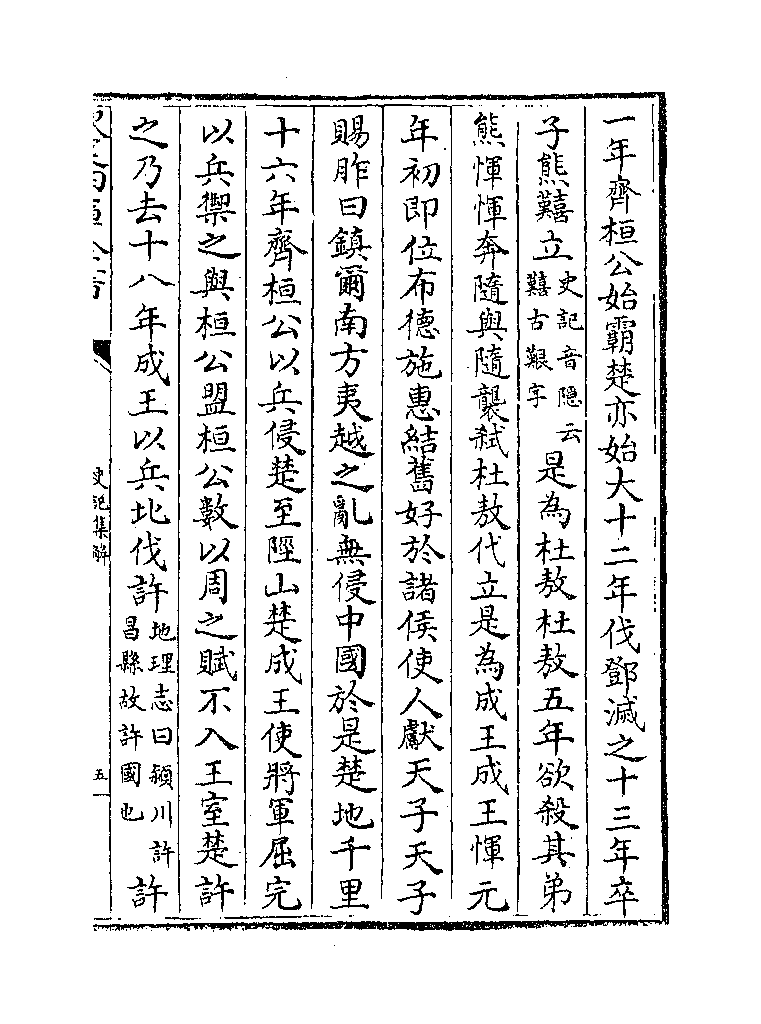 一年齊桓公始霸楚亦始大十二年伐鄧滅之十三年卒
子熊囏立史記音隱云囏古艱字是為杜敖杜敖五年欲殺其弟
熊惲惲奔隨與隨襲弑杜敖代立是為成王成王惲元
年初即位布德施惠結舊好於諸侯使人獻天子天子
賜胙曰鎮爾南方夷越之亂無侵中國於是楚地千里
十六年齊桓公以兵侵楚至陘山楚成王使將軍屈完
以兵禦之與桓公盟桓公數以周之賦不入王室楚許
之乃去十八年成王以兵北伐許地理志曰潁川許昌縣故許國也許
史記集解
五